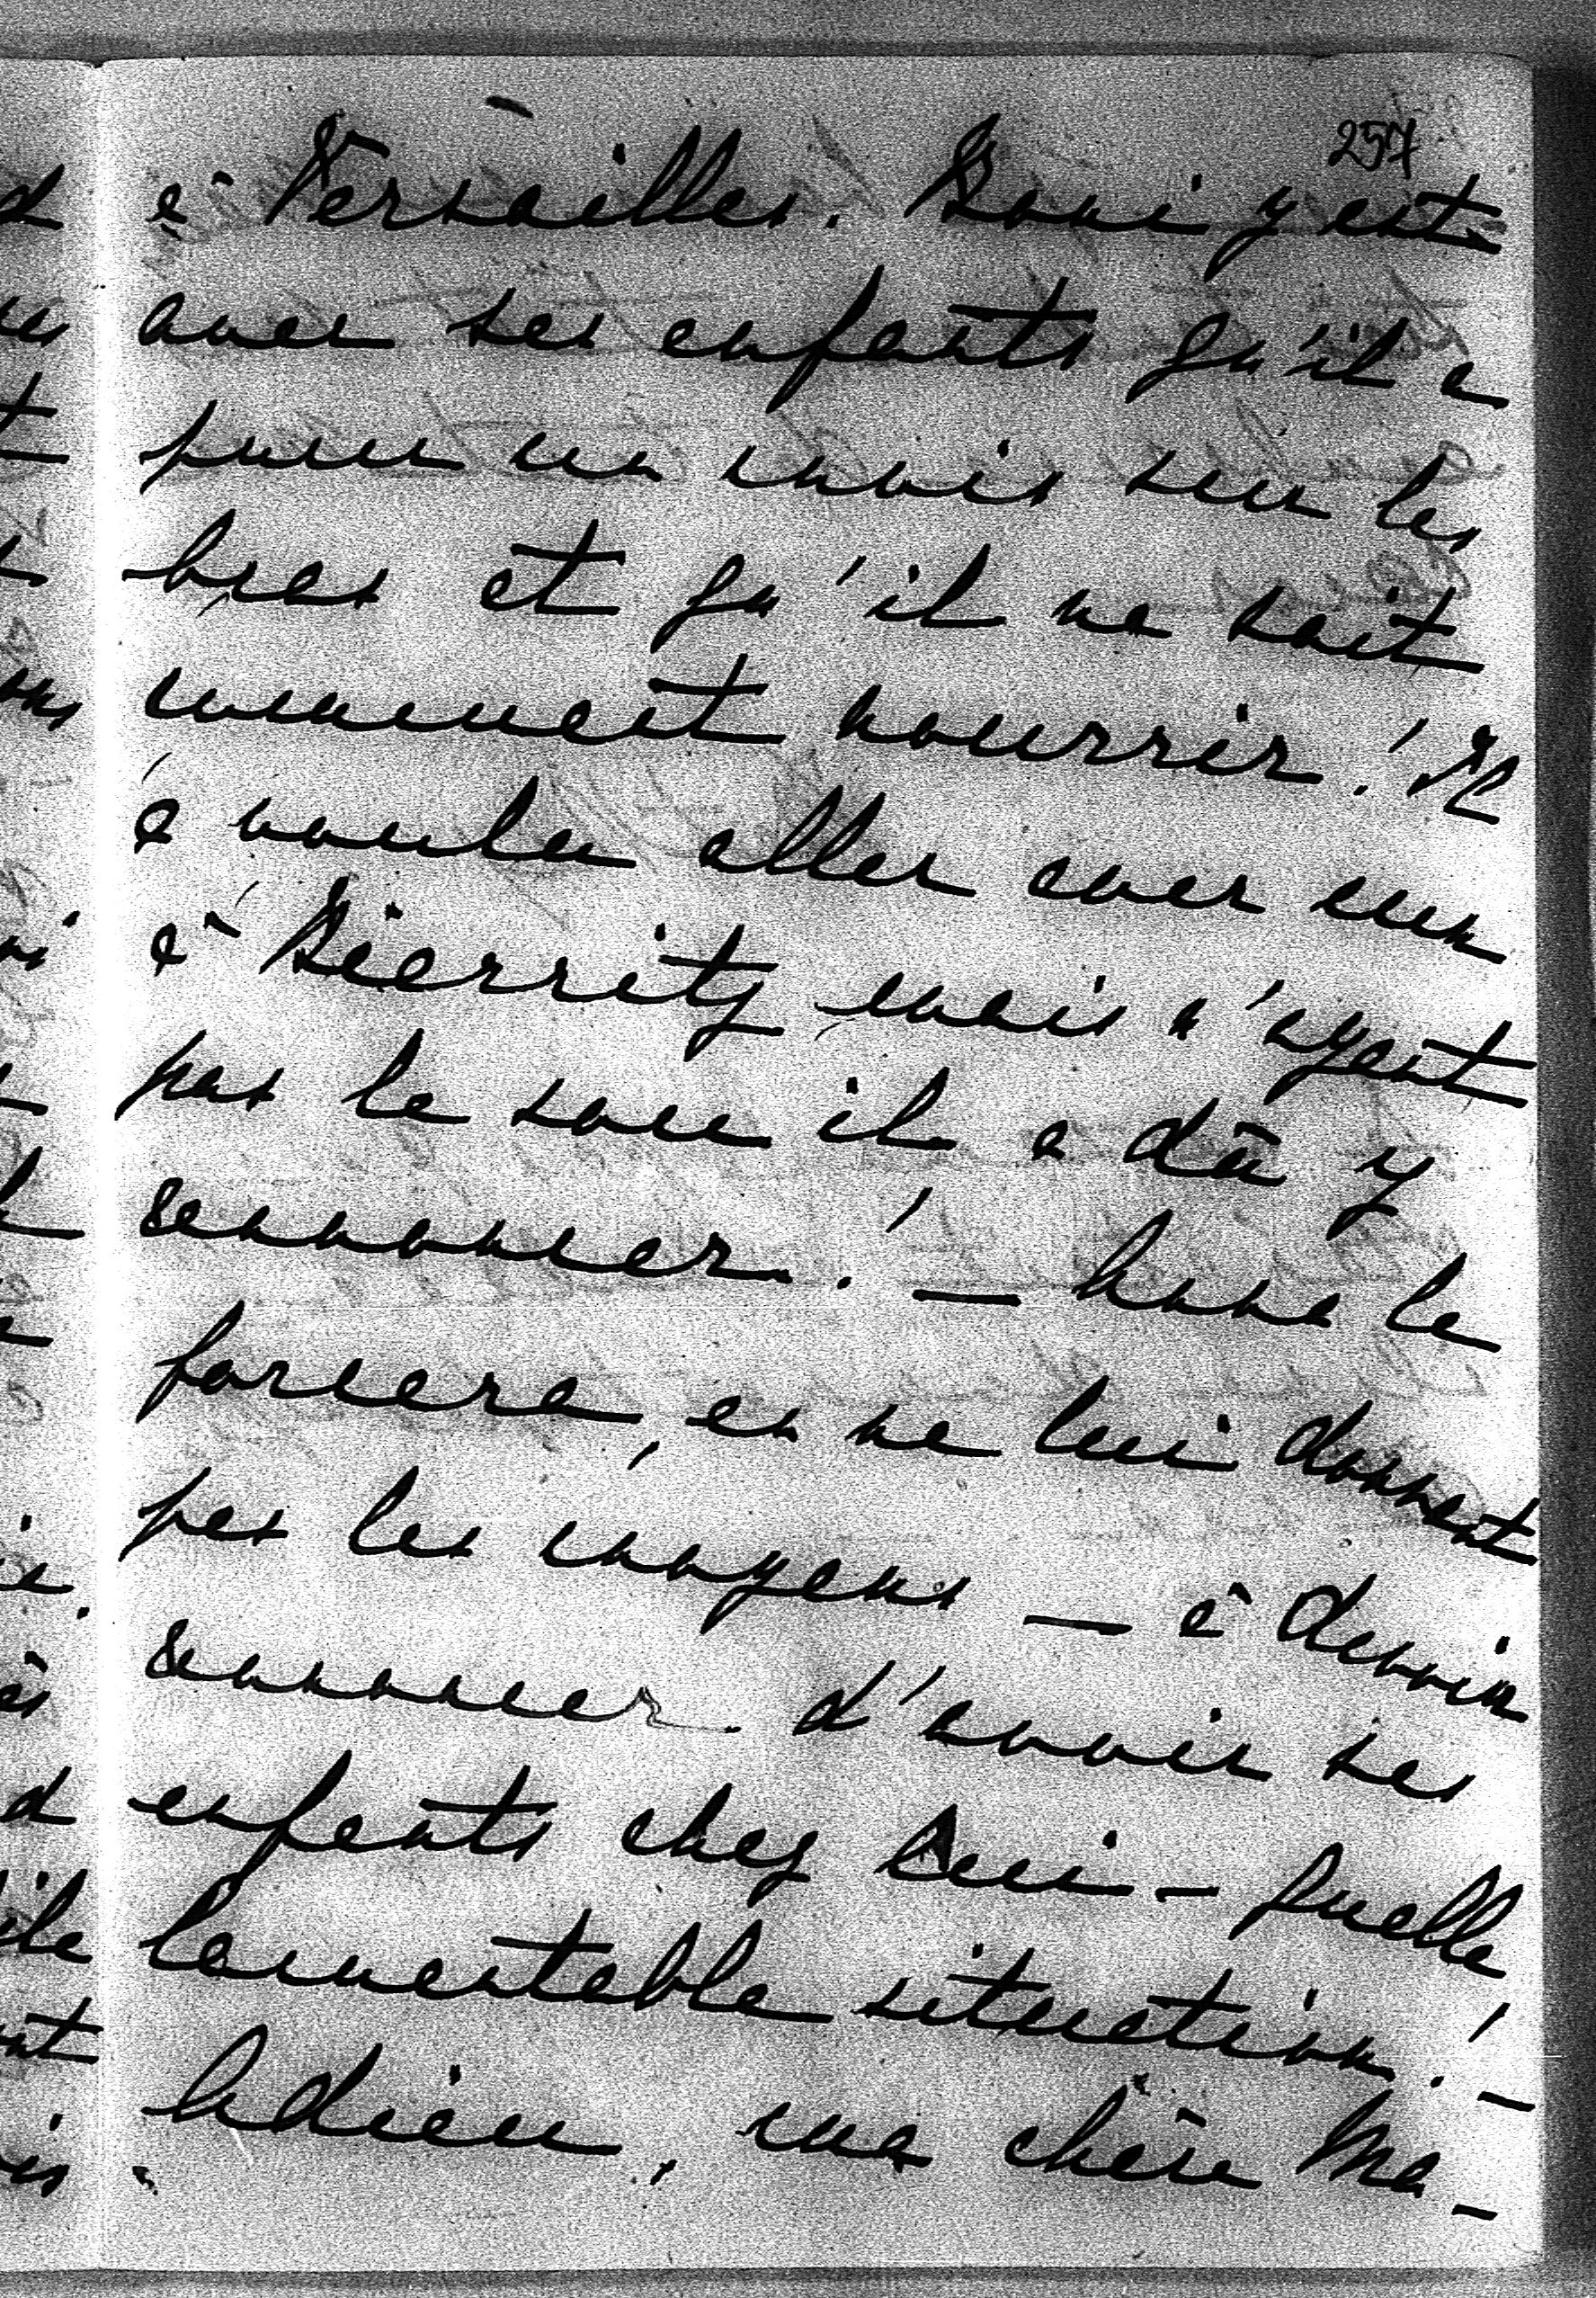 257
à Versailles. Boni y est
avec ses enfants qu'il a
pour un mois sur les
bras et qu'il ne sait
comment nourrir! Il
a voulu aller avec eux
à Biarritz mais n'ayant
pas le sou il a dû y
renoncer! — Anna le
forcera, en ne lui donnant
pas les moyens — à devoir
renoncer d'avoir ses
enfants chez lui — quelle
lamentable situation! —
Adieu, ma chère Ma-